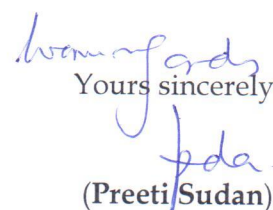 Warm regards
Yours sincerely
(Preeti Sudan)